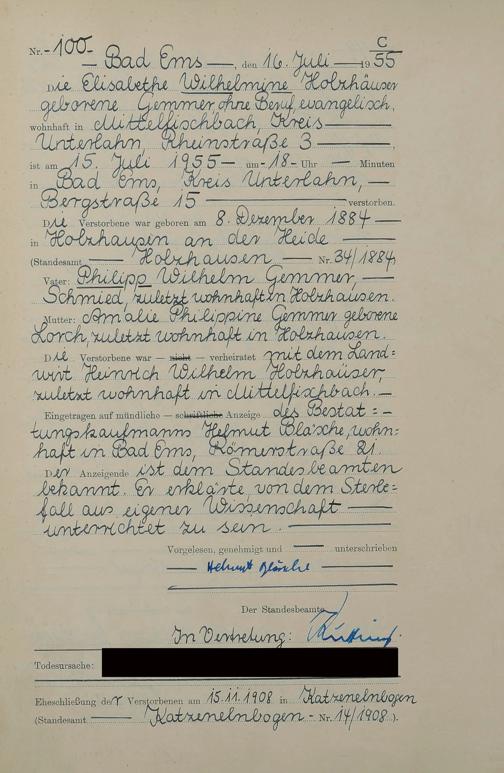 C
Nr. -100-
— Bad Ems —, den 16. Juli — 1955
Die Elisabethe Wilhelmine Holzhäuser
geborene Gemmer, ohne Beruf, evangelisch,
wohnhaft in Mittelfischbach, Kreis —
Unterlahn, Rheinstraße 3 —,
ist am 15. Juli 1955 — um -18- Uhr — Minuten
in Bad Ems, Kreis Unterlahn, —
Bergstraße 15 — verstorben.
Die Verstorbene war geboren am 8. Dezember 1884 —
in Holzhausen an der Heide —
(Standesamt — Holzhausen — Nr. 34/1884)
Vater: Philipp Wilhelm Gemmer, —
Schmied, zuletzt wohnhaft in Holzhausen.
Mutter: Amalie Philippine Gemmer geborene
Lorch, zuletzt wohnhaft in Holzhausen.
Die Verstorbene war — nicht — verheiratet mit dem Land=
wirt Heinrich Wilhelm Holzhäuser,
zuletzt wohnhaft in Mittelfischbach. —
Eingetragen auf mündliche — schriftliche Anzeige des Bestat=
tungskaufmanns Helmut Bläsche, wohn=
haft in Bad Ems, Römerstraße 81.
Der Anzeigende ist dem Standesbeamten
bekannt. Er erklärte, von dem Sterbe=
fall aus eigener Wissenschaft —
unterrichtet zu sein. —
Vorgelesen, genehmigt und — unterschrieben
— Helmut Bläsche —
Der Standesbeamte
In Vertretung:
Todesursache:
Eheschließung der Verstorbenen am 15.11.1908 in Katzenelnbogen
(Standesamt — Katzenelnbogen - Nr. 14/1908).